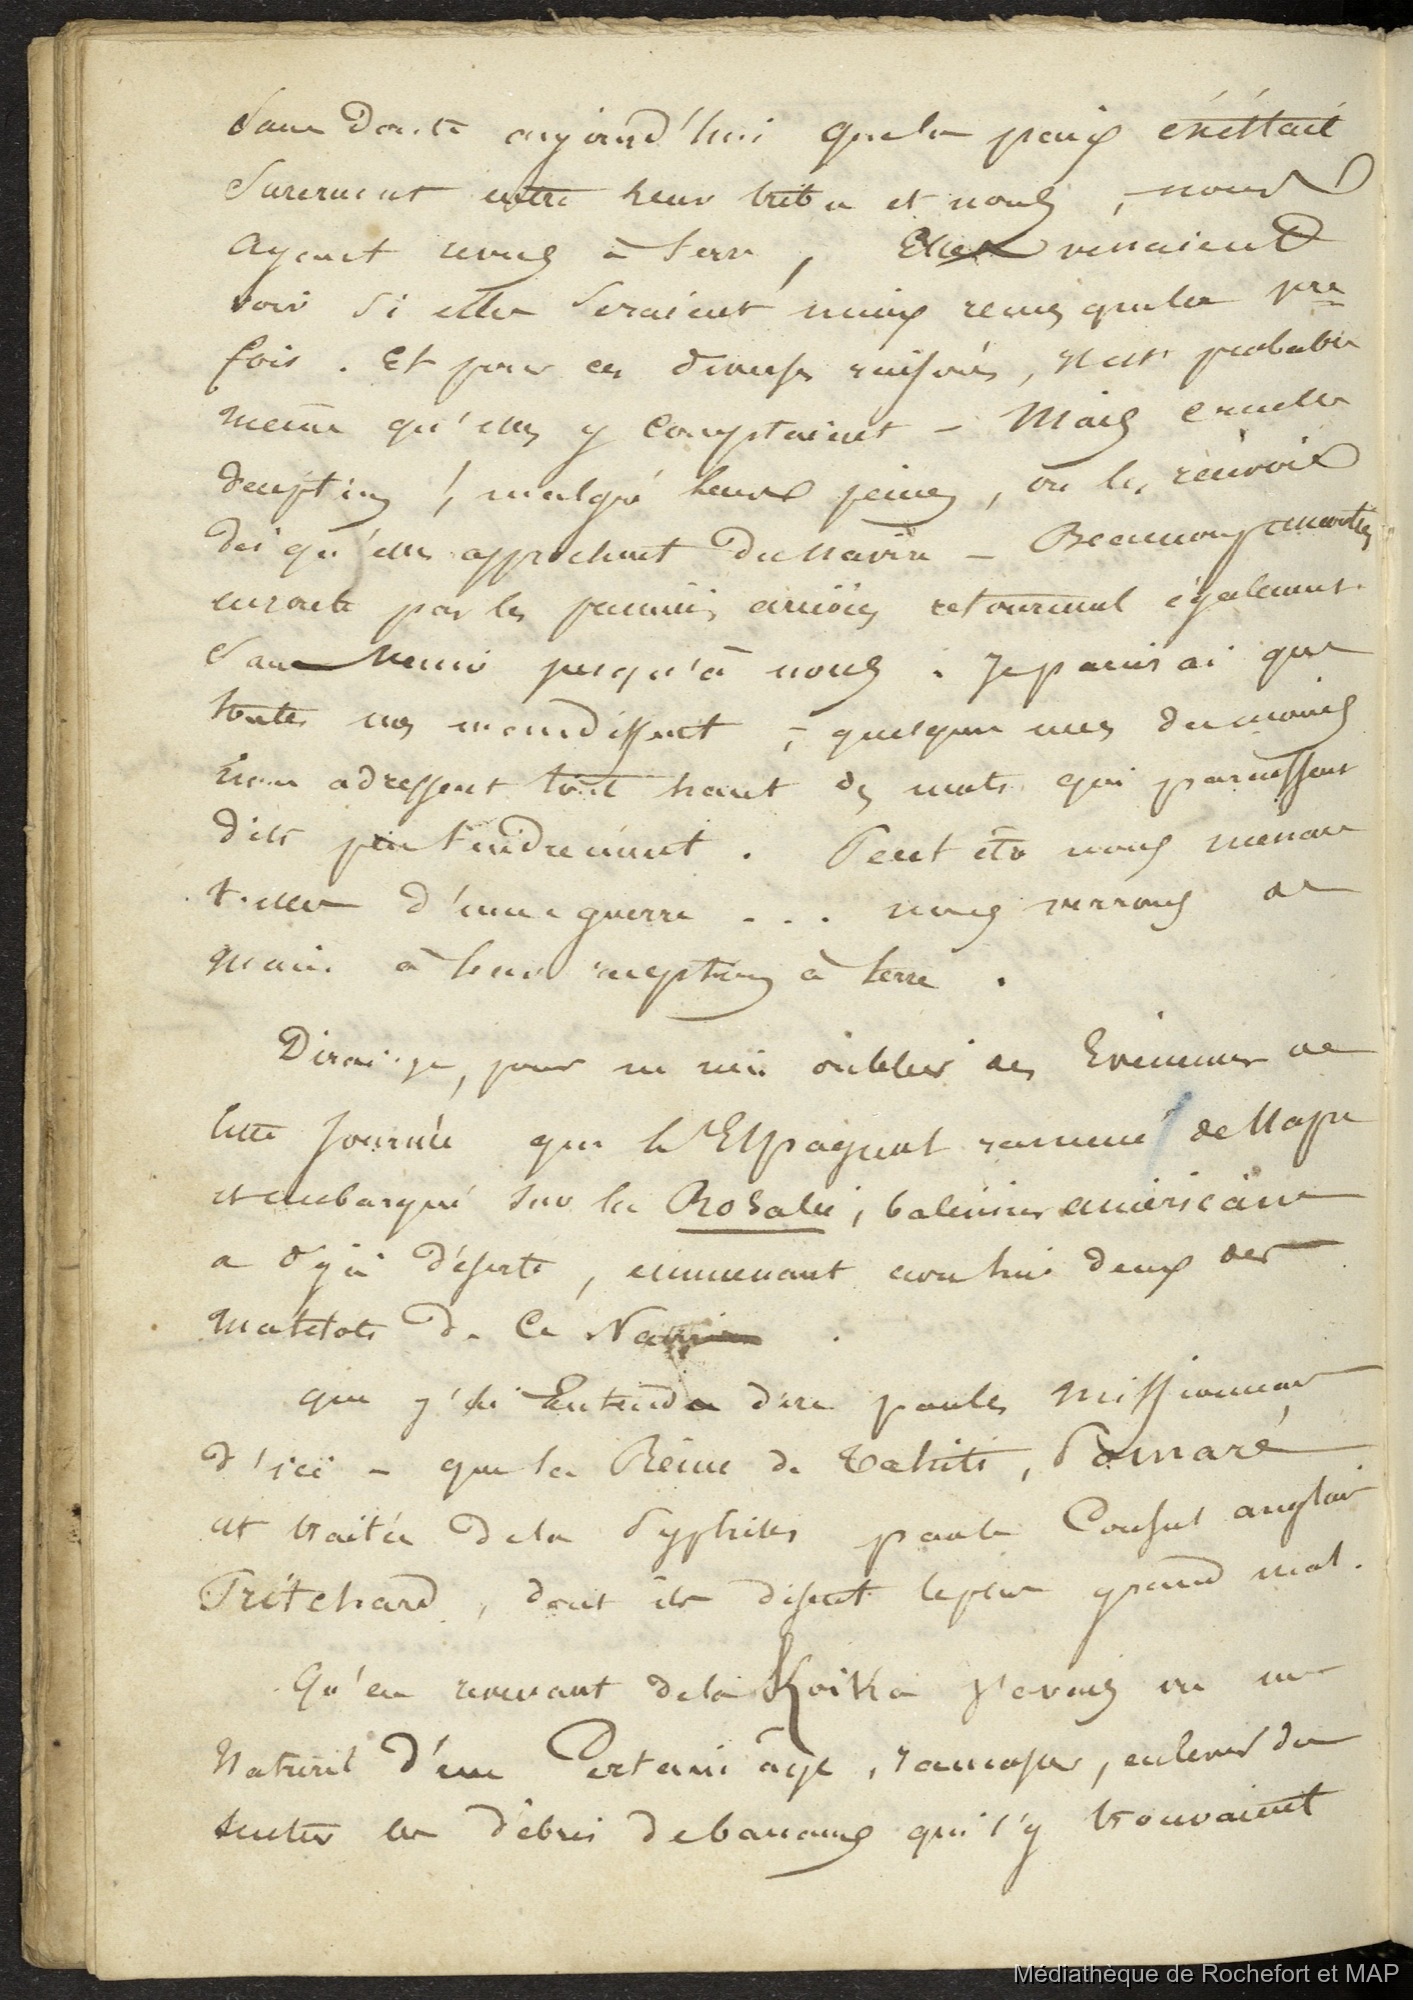 Sans doute aujourd'hui que la paix éxistait
surement entre leur tribu et nous, nous
ayant revus à terre, Elles venaient
voir si elles seraient mieux reçues que la pre
fois. Et pour ces diverses raisons, il est probable
meme qu'elles y comptaient - Mais cruelle
deception !, malgré leurs peines, on les renvoie
dès qu'elles approchent du navire - Beaucoup
en route par les premières arrivées retournent également
sans venir jusqu'à nous. Je penserai que
toutes nos maudissent, quelques unes du moins
nous adressent tout haut des mots qui paraissent
dits peu tendrement. Peut etre nous menacent
t-elles d'une guerre ... nous verrons de
main à leur reception à terre.
Dirai-je, pour ne rien oublier des Evénemens de
cette Journée que l'Espagnol ramené de Napu
et embarqué sur la Rosalie, baleinier américain
a déjà déserté, emmenant avec lui deux des
Matelots de ce Navire.
que j'ai Entendu dire par les Missionnaires
d'ici - que la Reine de Tahiti, Pomaré
est traitée de la Syphilis par le Consul anglais
Pritchard, dont ils disent le plus grand mal.
Qu'en revenant de la Koika j'avais vu un
Naturel d'un Certain âge, ramasser, enlever du
sentier les débris de bananes qui s'y trouvaient
Médiathèque de Rochefort et MAP